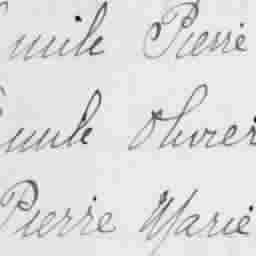 Emile Pierre
Emile Olivier
Pierre Marie